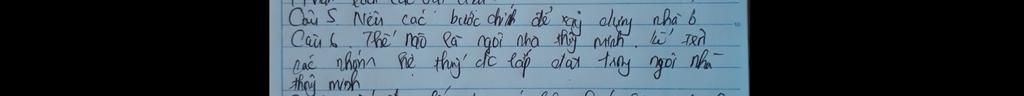 Câu 5. Nêu các bước chính để xây dựng nhà ở
Câu 6. Thế nào là ngôi nhà thông minh. kể tên
các nhóm hệ thống đc lắp đặt trong ngôi nhà
thông minh